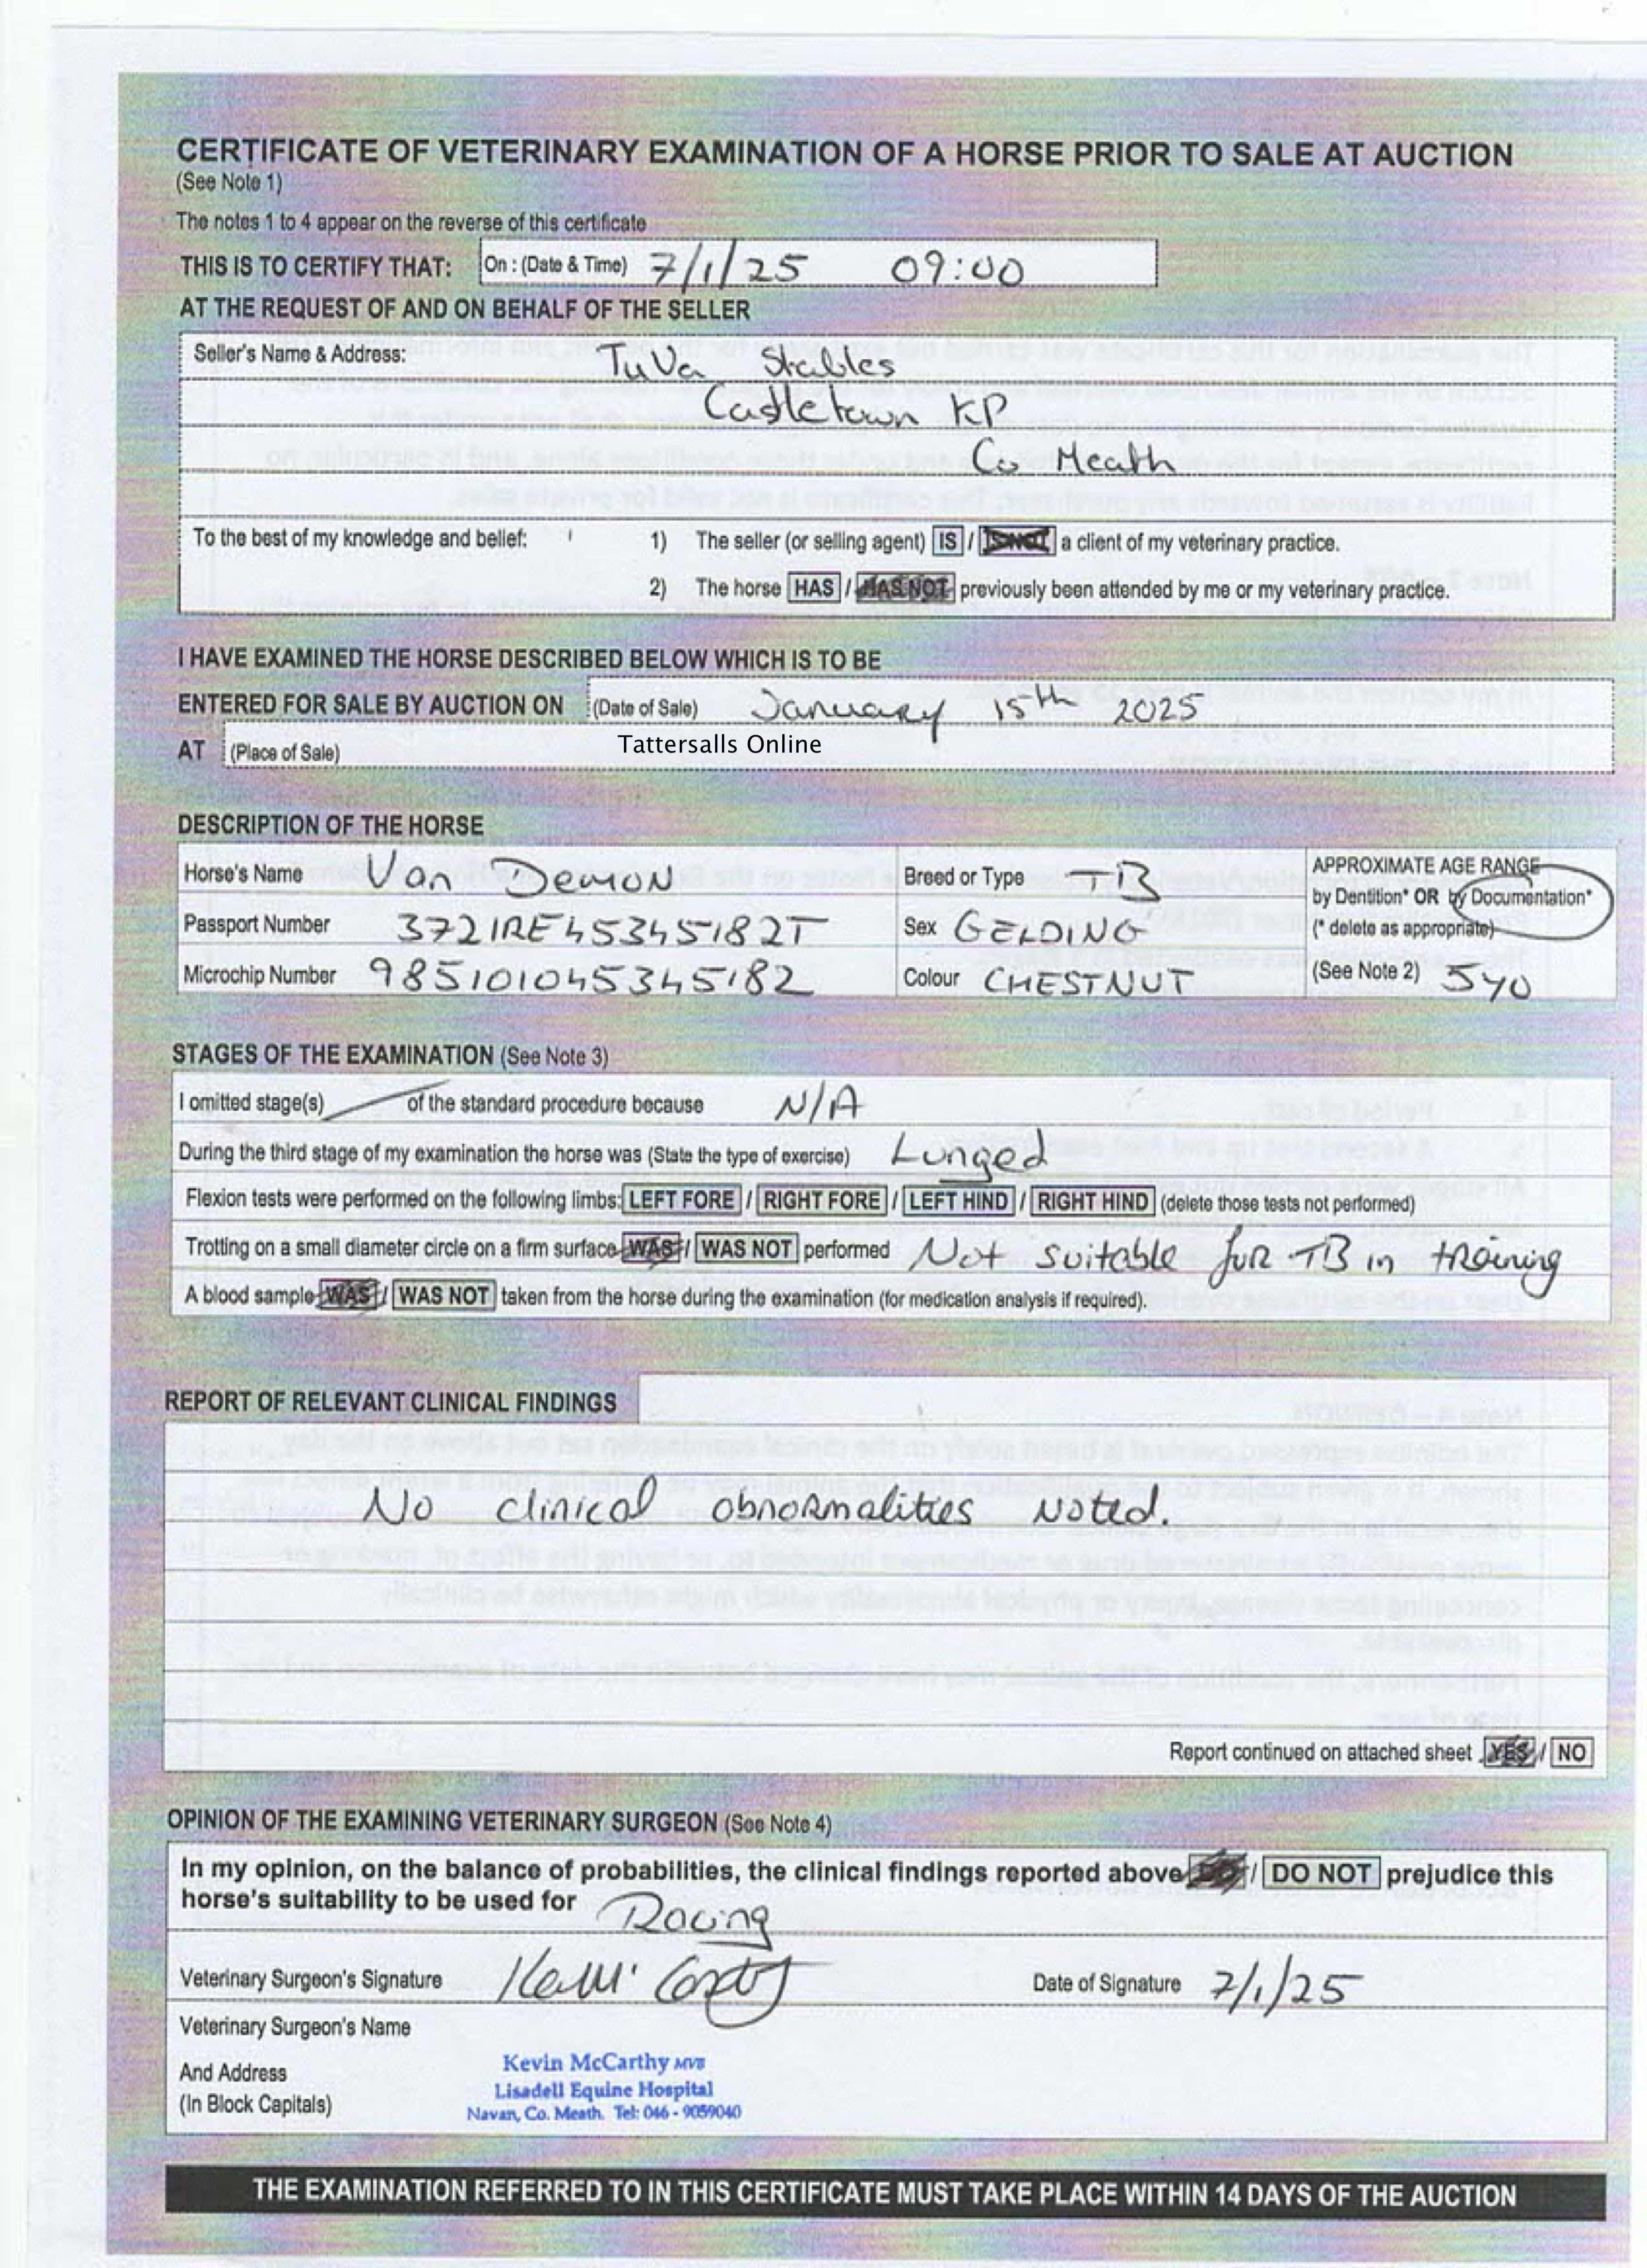 CERTIFICATE OF VETERINARY EXAMINATION OF A HORSE PRIOR TO SALE AT AUCTION
(See Note 1)
The notes 1 to 4 appear on the reverse of this certificate
THIS IS TO CERTIFY THAT: On : (Date & Time) 7/1/25 09:00
AT THE REQUEST OF AND ON BEHALF OF THE SELLER
Seller's Name & Address: TuVa Stables
Castletown KP
Co Meath
To the best of my knowledge and belief: 1) The seller (or selling agent) IS / IS NOT a client of my veterinary practice.
2) The horse HAS / HAS NOT previously been attended by me or my veterinary practice.
I HAVE EXAMINED THE HORSE DESCRIBED BELOW WHICH IS TO BE
ENTERED FOR SALE BY AUCTION ON (Date of Sale) January 15th 2025
AT (Place of Sale) Tattersalls Online
DESCRIPTION OF THE HORSE
Horse's Name Van Demon Breed or Type TB APPROXIMATE AGE RANGE
by Dentition* OR by Documentation*
Passport Number 372IRE45345182T Sex GELDING (* delete as appropriate)
Microchip Number 985101045345182 Colour CHESTNUT (See Note 2) 5YO
STAGES OF THE EXAMINATION (See Note 3)
I omitted stage(s) of the standard procedure because N/A
During the third stage of my examination the horse was (State the type of exercise) Lunged
Flexion tests were performed on the following limbs: LEFT FORE / RIGHT FORE / LEFT HIND / RIGHT HIND (delete those tests not performed)
Trotting on a small diameter circle on a firm surface WAS / WAS NOT performed Not suitable for TB in training
A blood sample WAS / WAS NOT taken from the horse during the examination (for medication analysis if required).
REPORT OF RELEVANT CLINICAL FINDINGS
No clinical abnormalities noted.
Report continued on attached sheet YES / NO
OPINION OF THE EXAMINING VETERINARY SURGEON (See Note 4)
In my opinion, on the balance of probabilities, the clinical findings reported above DO / DO NOT prejudice this
horse's suitability to be used for Racing
Veterinary Surgeon's Signature Date of Signature 7/1/25
Veterinary Surgeon's Name
And Address
(In Block Capitals)
Kevin McCarthy MVB
Lisadell Equine Hospital
Navan, Co. Meath. Tel: 046 - 9059040
THE EXAMINATION REFERRED TO IN THIS CERTIFICATE MUST TAKE PLACE WITHIN 14 DAYS OF THE AUCTION